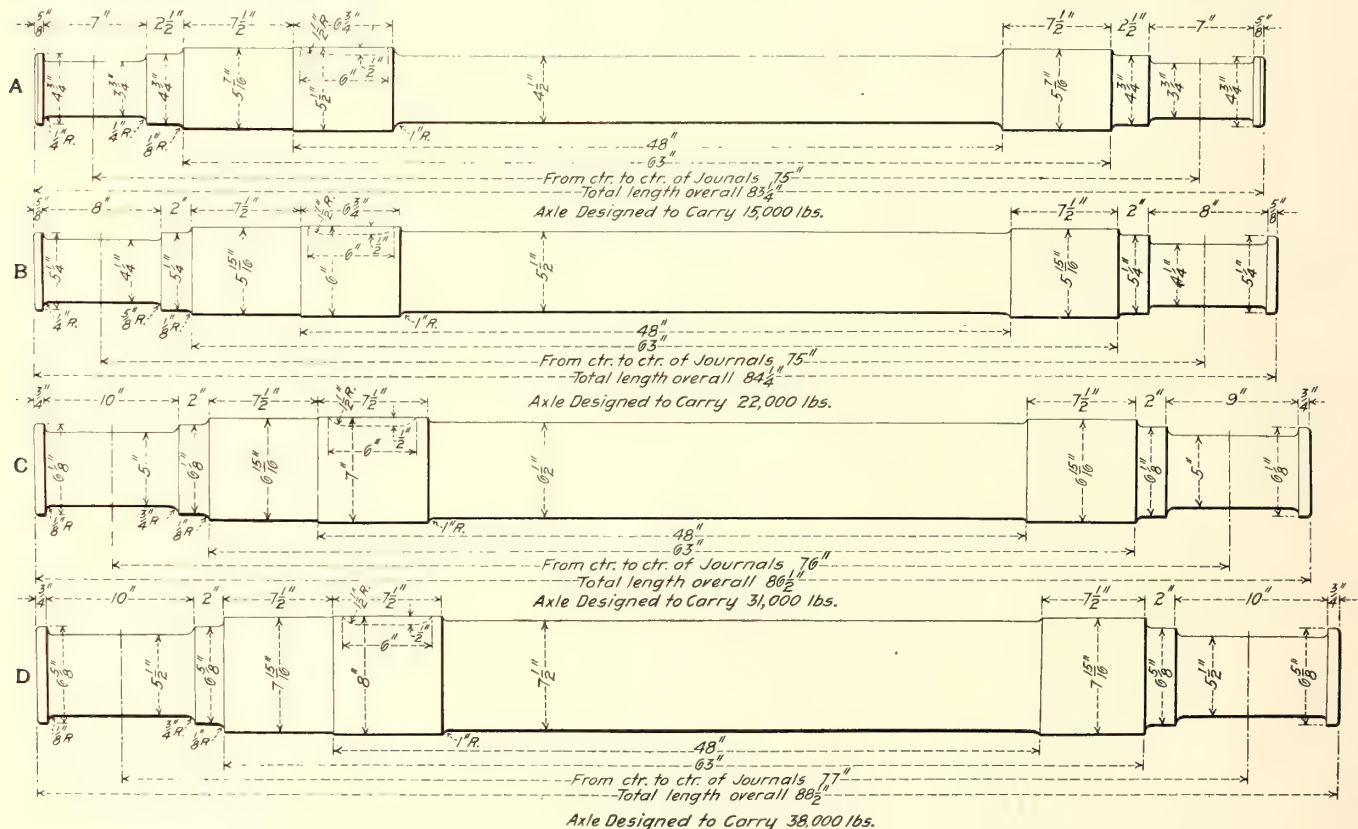 5/8" 7" 2 1/2" 7 1/2" 1 1/2" R. 6 3/4" 7 1/2" 2 1/2" 7" 5/8"
A 4 3/4" 3 3/4" 4 3/4" 5 7/16" 5 1/2" 6" 1/2" 4 1/2" 5 7/16" 4 3/4" 3 3/4" 4 3/4"
1/4" R. 1/4" R. 1/8" R. 1" R.
48"
63"
From ctr. to ctr. of Jounals 75"
Total length overall 83 1/4"
Axle Designed to Carry 15,000 lbs.
5/8" 8" 2" 7 1/2" 1 1/2" R. 6 3/4" 7 1/2" 2" 8" 5/8"
B 5 1/4" 4 1/4" 5 1/4" 5 15/16" 6" 6" 1/2" 5 1/2" 5 15/16" 5 1/4" 4 1/4" 5 1/4"
1/4" R. 5/8" R. 1/8" R. 1" R.
48"
63"
From ctr. to ctr. of Journals 75"
Total length overall 84 1/4"
Axle Designed to Carry 22,000 lbs.
3/4" 10" 2" 7 1/2" 1 1/2" R. 7 1/2" 7 1/2" 2" 9" 3/4"
C 6 1/8" 5" 6 1/8" 6 15/16" 7" 6" 1/2" 6 1/2" 6 15/16" 6 1/8" 5" 6 1/8"
1/8" R 3/4" R 1/8" R 1" R.
48"
63"
From ctr. to ctr. of Journals 76"
Total length overall 86 1/2"
Axle Designed to Carry 31,000 lbs.
3/4" 10" 2" 7 1/2" 1 1/2" R. 7 1/2" 7 1/2" 2" 10" 3/4"
D 6 5/8" 5 1/2" 6 5/8" 7 15/16" 8" 6" 1/2" 7 1/2" 7 15/16" 6 5/8" 5 1/2" 6 5/8"
1/8" R 3/4" R. 1/8" R 1" R.
48"
63"
From ctr. to ctr. of Journals 77"
Total length overall 88 1/2"
Axle Designed to Carry 38,000 lbs.